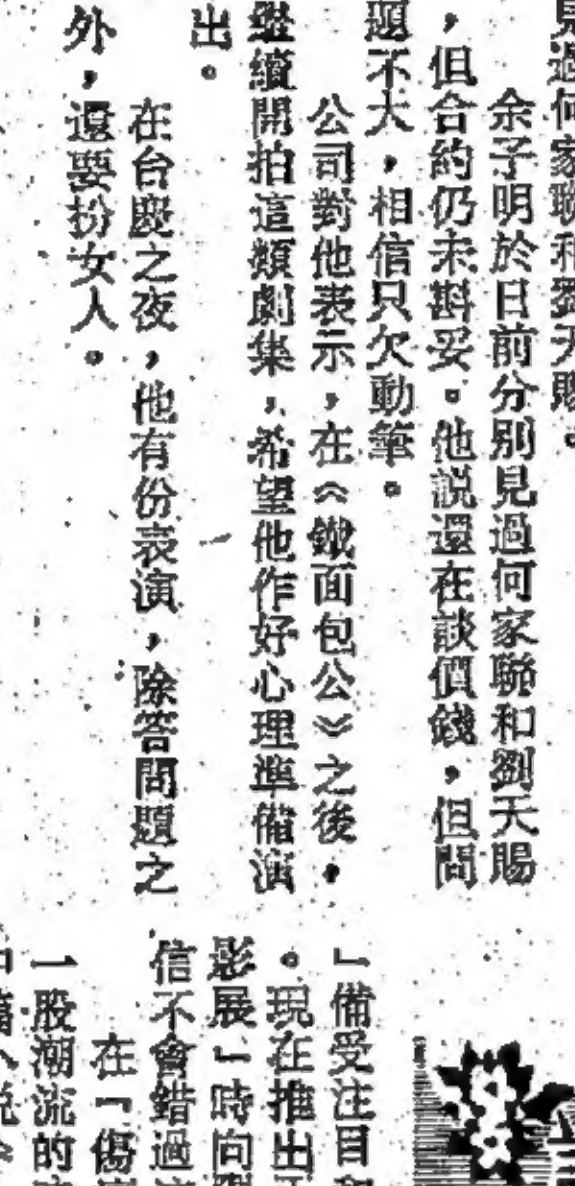 見過何家聯和劉天賜。
余子明於日前分別見過何家聯和劉天賜
，但合約仍未斟妥。他説還在談價錢，但問
題不大，相信只欠動筆。
公司對他表示，在《鐵面包公》之後，
繼續開拍這類劇集，希望他作好心理準備演
出。
在台慶之夜，他有份表演，除答問題之
外，還要扮女人。
」備受注目和
。現在推出
影展」時向
信不會錯過
在「傷
一股潮流的